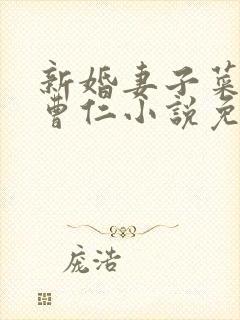 新婚妻子菜
曹仁小说免
庞浩